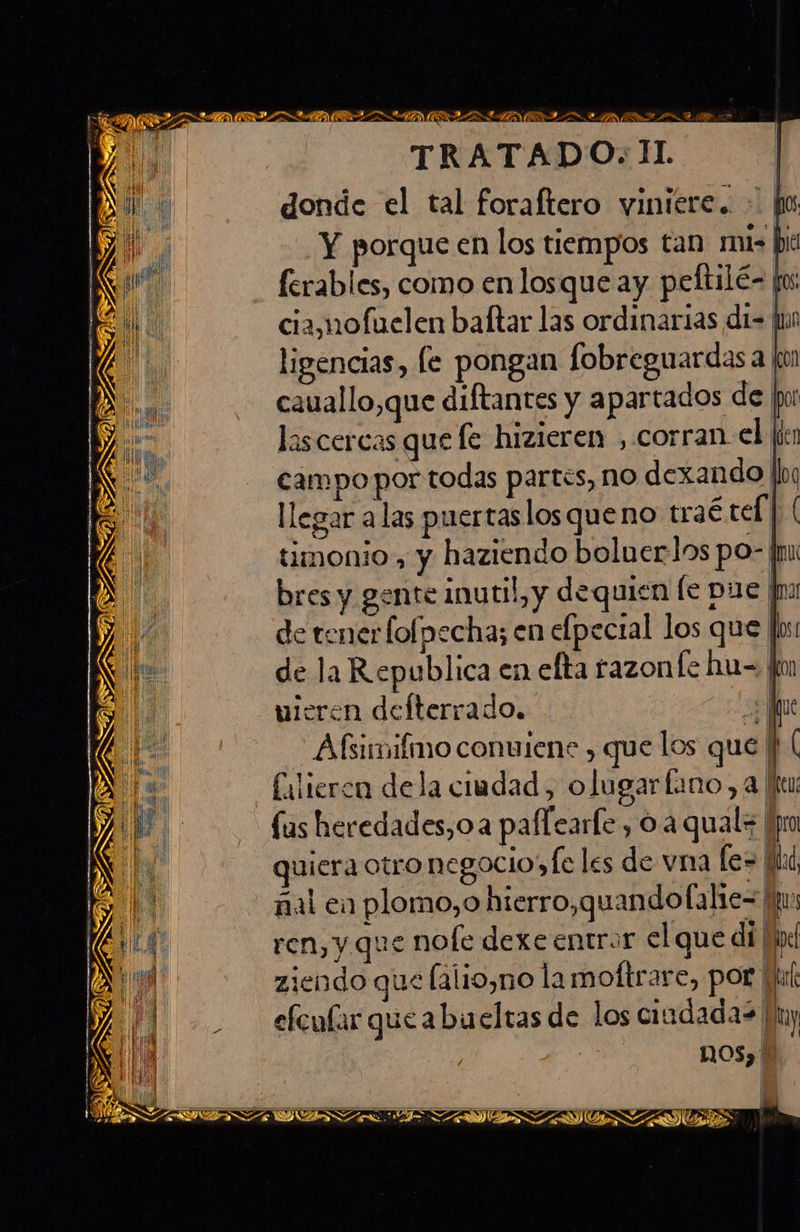 TRATADO. II.
donde el tal foraſtero viniere.
Y porque en los tiempos tan mi-
ſerables, como en los que ay peſtilẽ-
cia, no ſuelen baſtar las ordinarias di-
ligencias, ſe pongan ſobreguardas a
cauallo, que diſtantes y apartados de
las cercas que ſe hizieren , corran el
campo por todas partes, no dexando
llegar a las puertas los que no traẽ teſ
timonio , y haziendo boluerlos po-
bres y gente inutil, y de quien ſe pue
de tener ſoſpecha; en eſpecial los que
de la Republica en eſta razon ſe hu-
uieren deſterrado.
Aſsimiſmo conuiene , que los que
ſalieren de la ciudad, o lugar ſano , a
ſus heredades, o a paſſearſe , o a qual-
quiera otro negocio, ſe les de vna ſe-
ñal en plomo, o hierro, quando ſalie-
ren, y que no ſe dexe entrar el que di
ziendo que ſalio, no la moſtrare, por
eſcuſar que a bueltas de los ciudada-
nos,